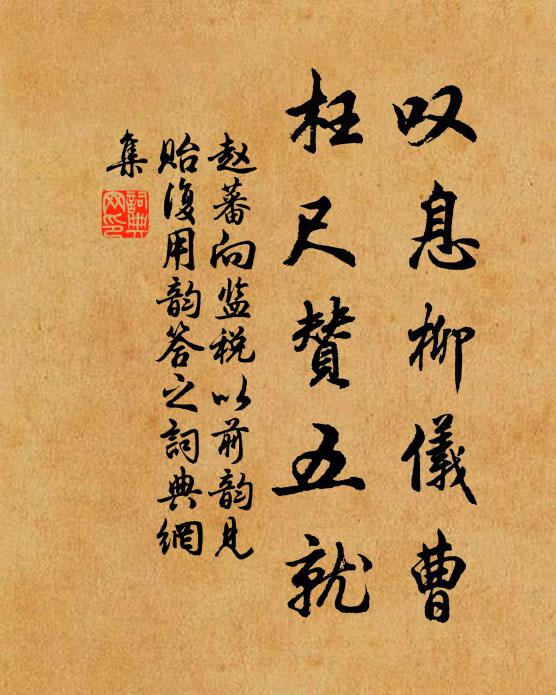 叹息柳儀曹
枉尺贊五就
赵蕃向监税以前韵见
贻復用韵答之詞典網
集
詞典
网印